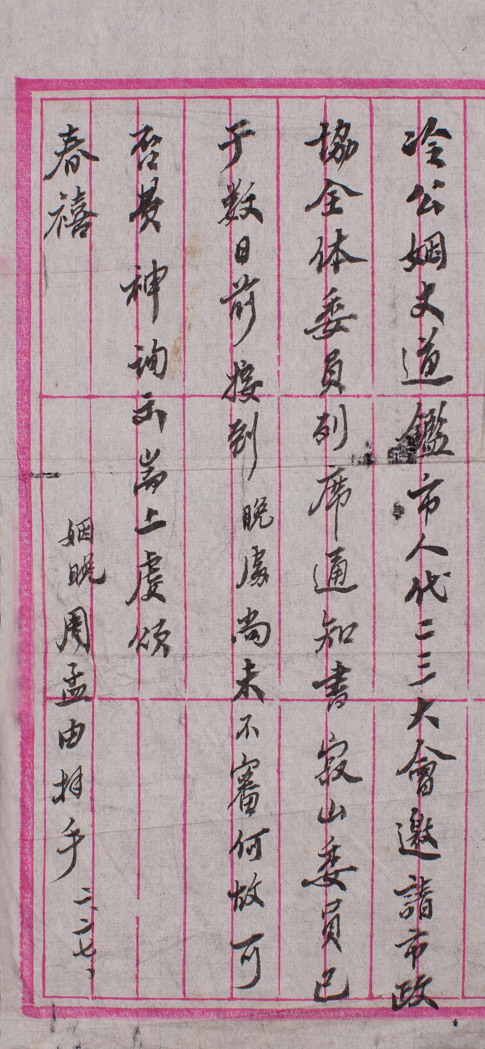 冷公姻丈道鑑市人代二三大會邀請市政
協全体委員列席通知書寂山委員已
于数日前接到晚處尚未不審何故可
否費神詢示耑上虔頌
春禧
姻晚周孟由拜手二、二七、